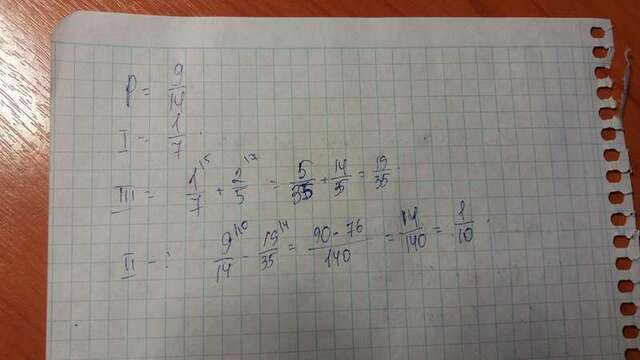 P = 9/14
I = 1/7
III = 1/7 + 2/5 = 5/35 + 14/35 = 19/35
II - ? 9/14 - 19/35 = 90 - 76/140 = 14/140 = 1/10